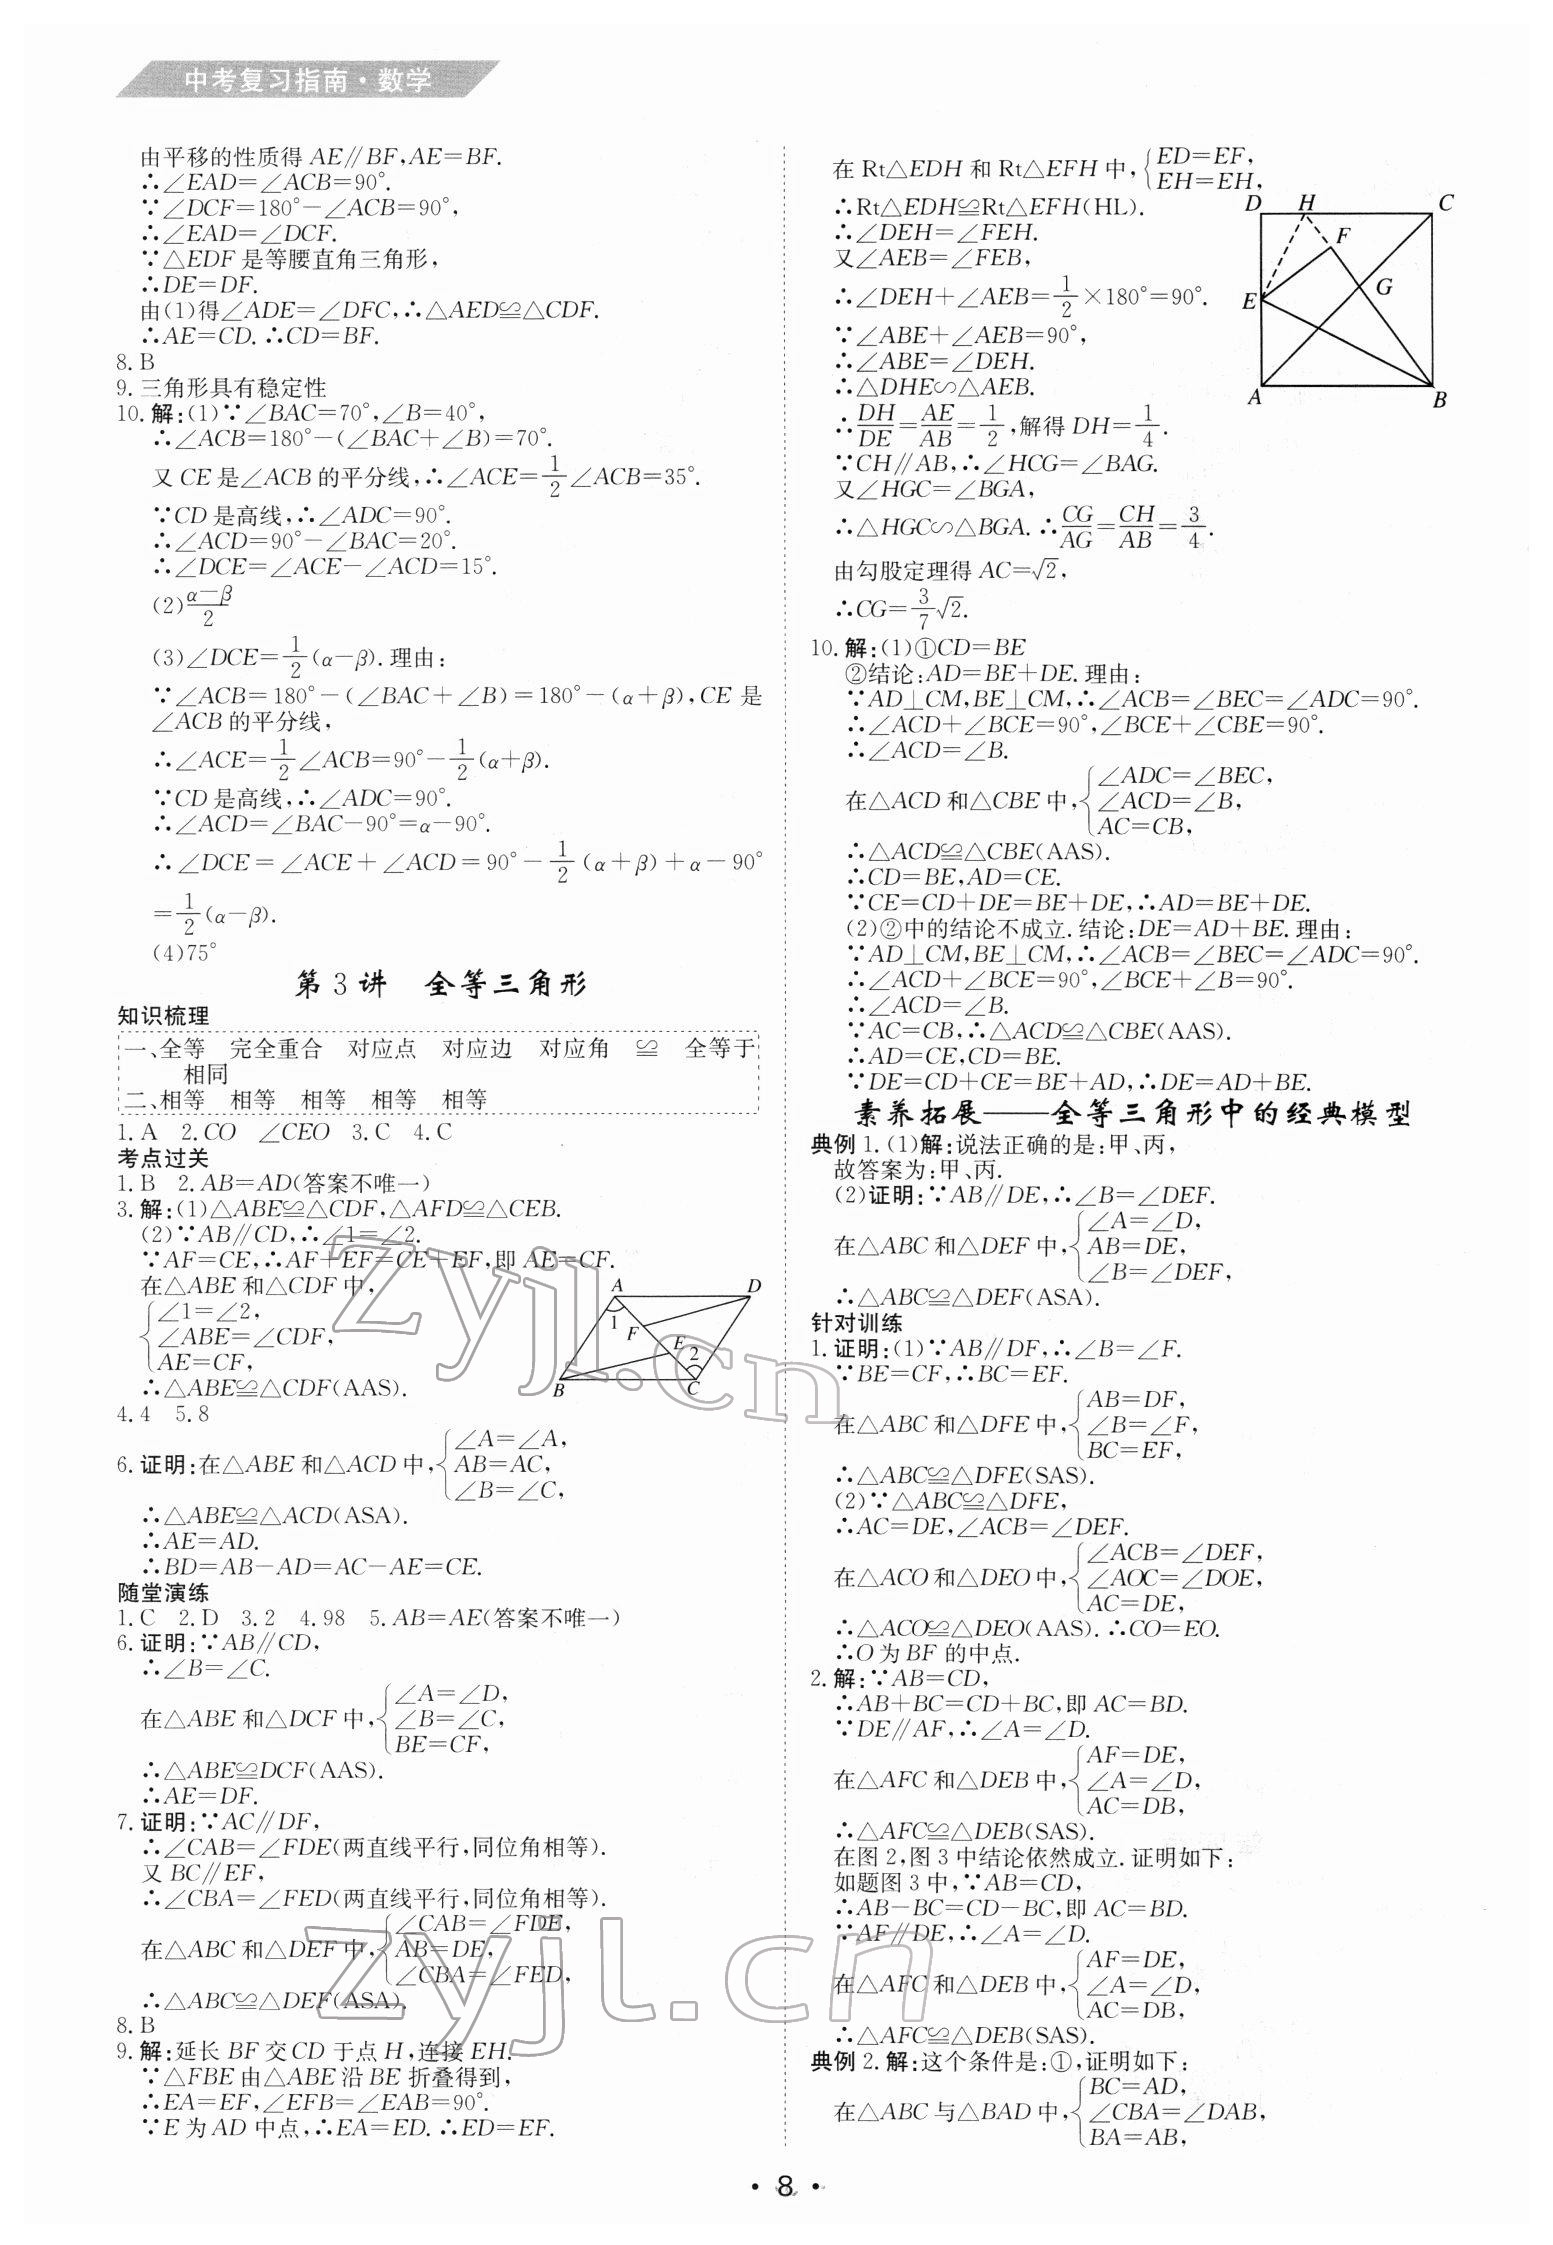 中考复习指南·数学
由平移的性质得 AE∥BF,AE=BF.
∴∠EAD=∠ACB=90°.
∵∠DCF=180°-∠ACB=90°,
∴∠EAD=∠DCF.
∵△EDF 是等腰直角三角形,
∴DE=DF.
由(1)得∠ADE=∠DFC,∴△AED≌△CDF.
∴AE=CD.∴CD=BF.
8.B
9.三角形具有稳定性
10.解:(1)∵∠BAC=70°,∠B=40°,
∴∠ACB=180°-(∠BAC+∠B)=70°.
又 CE 是∠ACB 的平分线,∴∠ACE=1/2∠ACB=35°.
∵CD 是高线,∴∠ADC=90°.
∴∠ACD=90°-∠BAC=20°.
∴∠DCE=∠ACE-∠ACD=15°.
(2)(α-β)/2
(3)∠DCE=1/2(α-β).理由:
∵∠ACB=180°-(∠BAC+∠B)=180°-(α+β),CE 是
∠ACB 的平分线,
∴∠ACE=1/2∠ACB=90°-1/2(α+β).
∵CD 是高线,∴∠ADC=90°.
∴∠ACD=∠BAC-90°=α-90°.
∴∠DCE=∠ACE+∠ACD=90°-1/2(α+β)+α-90°
=1/2(α-β).
(4)75°
第 3 讲 全等三角形
知识梳理
一、全等 完全重合 对应点 对应边 对应角 ≌ 全等于
相同
二、相等 相等 相等 相等 相等
1.A 2.CO ∠CEO 3.C 4.C
考点过关
1.B 2.AB=AD(答案不唯一)
3.解:(1)△ABE≌△CDF,△AFD≌△CEB.
(2)∵AB∥CD,∴∠1=∠2.
∵AF=CE,∴AF+EF=CE+EF,即 AE=CF.
在△ABE 和△CDF 中,
∠1=∠2,
∠ABE=∠CDF,
AE=CF,
∴△ABE≌△CDF(AAS).
A D
1 F E 2
B C
4.4 5.8
6.证明:在△ABE 和△ACD 中,{∠A=∠A,
AB=AC,
∠B=∠C,
∴△ABE≌△ACD(ASA).
∴AE=AD.
∴BD=AB-AD=AC-AE=CE.
随堂演练
1.C 2.D 3.2 4.98 5.AB=AE(答案不唯一)
6.证明:∵AB∥CD,
∴∠B=∠C.
在△ABE 和△DCF 中,{∠A=∠D,
∠B=∠C,
BE=CF,
∴△ABE≌DCF(AAS).
∴AE=DF.
7.证明:∵AC∥DF,
∴∠CAB=∠FDE(两直线平行,同位角相等).
又 BC∥EF,
∴∠CBA=∠FED(两直线平行,同位角相等).
在△ABC 和△DEF 中,{∠CAB=∠FDE,
AB=DE,
∠CBA=∠FED,
∴△ABC≌△DEF(ASA).
8.B
9.解:延长 BF 交 CD 于点 H,连接 EH.
∵△FBE 由△ABE 沿 BE 折叠得到,
∴EA=EF,∠EFB=∠EAB=90°.
∵E 为 AD 中点,∴EA=ED.∴ED=EF.
在 Rt△EDH 和 Rt△EFH 中,{ED=EF,
EH=EH,
∴Rt△EDH≌Rt△EFH(HL).
∴∠DEH=∠FEH.
又∠AEB=∠FEB,
∴∠DEH+∠AEB=1/2×180°=90°.
∵∠ABE+∠AEB=90°,
∴∠ABE=∠DEH.
∴△DHE∽△AEB.
∴DH/DE=AE/AB=1/2,解得 DH=1/4.
∵CH∥AB,∴∠HCG=∠BAG.
又∠HGC=∠BGA,
∴△HGC∽△BGA.∴CG/AG=CH/AB=3/4.
由勾股定理得 AC=√2,
∴CG=3/7√2.
D H C
F
G
E
A B
10.解:(1)①CD=BE
②结论:AD=BE+DE.理由:
∵AD⊥CM,BE⊥CM,∴∠ACB=∠BEC=∠ADC=90°.
∴∠ACD+∠BCE=90°,∠BCE+∠CBE=90°.
∴∠ACD=∠B.
在△ACD 和△CBE 中,{∠ADC=∠BEC,
∠ACD=∠B,
AC=CB,
∴△ACD≌△CBE(AAS).
∴CD=BE,AD=CE.
∵CE=CD+DE=BE+DE,∴AD=BE+DE.
(2)②中的结论不成立.结论:DE=AD+BE.理由:
∵AD⊥CM,BE⊥CM,∴∠ACB=∠BEC=∠ADC=90°.
∴∠ACD+∠BCE=90°,∠BCE+∠B=90°.
∴∠ACD=∠B.
∵AC=CB,∴△ACD≌△CBE(AAS).
∴AD=CE,CD=BE.
∵DE=CD+CE=BE+AD,∴DE=AD+BE.
素养拓展——全等三角形中的经典模型
典例 1.(1)解:说法正确的是:甲、丙,
故答案为:甲、丙.
(2)证明:∵AB∥DE,∴∠B=∠DEF.
在△ABC 和△DEF 中,{∠A=∠D,
AB=DE,
∠B=∠DEF,
∴△ABC≌△DEF(ASA).
针对训练
1.证明:(1)∵AB∥DF,∴∠B=∠F.
∵BE=CF,∴BC=EF.
在△ABC 和△DFE 中,{AB=DF,
∠B=∠F,
BC=EF,
∴△ABC≌△DFE(SAS).
(2)∵△ABC≌△DFE,
∴AC=DE,∠ACB=∠DEF.
在△ACO 和△DEO 中,{∠ACB=∠DEF,
∠AOC=∠DOE,
AC=DE,
∴△ACO≌△DEO(AAS).∴CO=EO.
∴O 为 BF 的中点.
2.解:∵AB=CD,
∴AB+BC=CD+BC,即 AC=BD.
∵DE∥AF,∴∠A=∠D.
在△AFC 和△DEB 中,{AF=DE,
∠A=∠D,
AC=DB,
∴△AFC≌△DEB(SAS).
在图 2,图 3 中结论依然成立.证明如下:
如题图 3 中,∵AB=CD,
∴AB-BC=CD-BC,即 AC=BD.
∵AF∥DE,∴∠A=∠D.
在△AFC 和△DEB 中,{AF=DE,
∠A=∠D,
AC=DB,
∴△AFC≌△DEB(SAS).
典例 2.解:这个条件是:①,证明如下:
在△ABC 与△BAD 中,{BC=AD,
∠CBA=∠DAB,
BA=AB,
· 8 ·
zyjl.cn
zyjl.cn